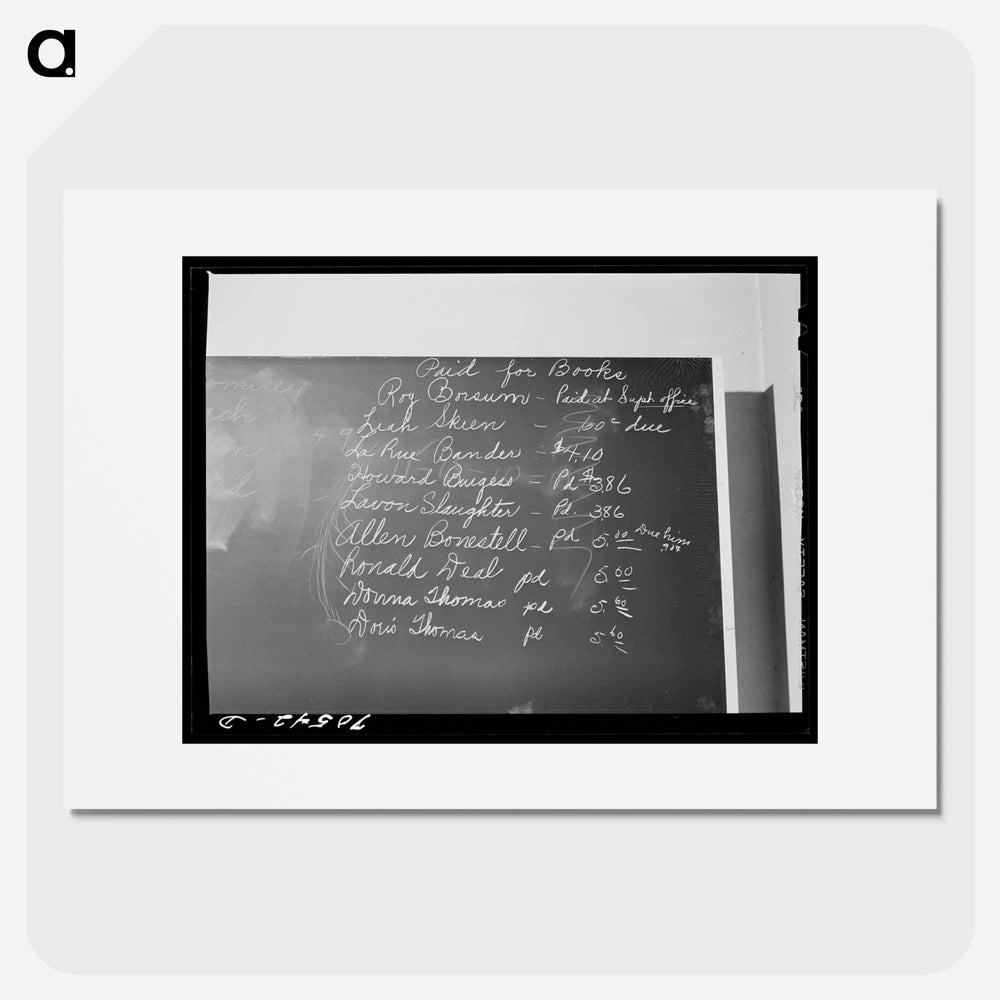 a.
Paid for Books
Roy Borsum - Paid at Supt. office
Leah Skeen - 60c due
La Rue Bander - $4.10
Howard Burgess - Pd $3.86
Lavon Slaughter - Pd. 3.86
Allen Bonestell - Pd 5.00 Due him
Ronald Deal pd 5.60
Donna Thomas pd 5.60
Doris Thomas pd 5.60
70542-D